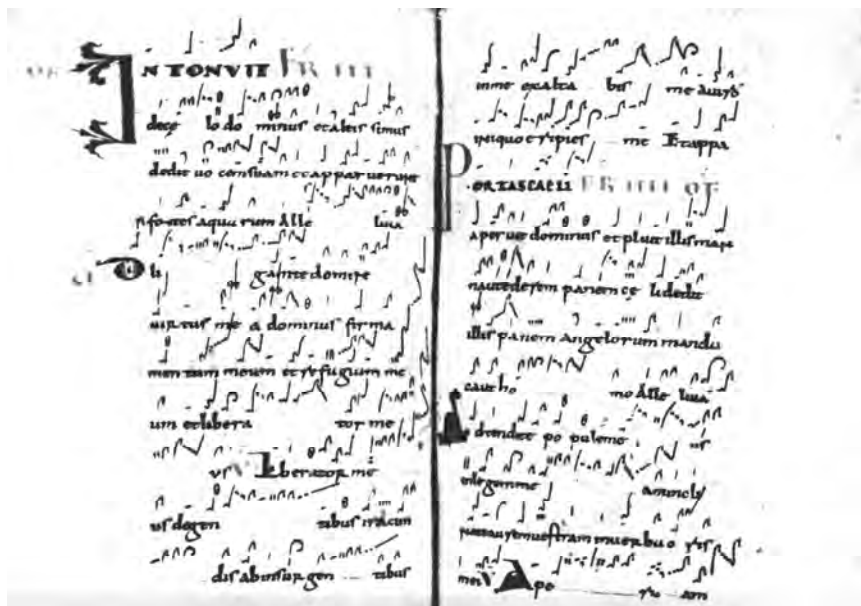 OF INTONUIT FR III
dece lo do minus et altis simus
dedit uocem suam et apparuerunt
fontes aquarum Alle luia
Di li gam te domine
uirtus me a dominus firma
mentum meum et refugium me
um et libera tor me
us V Liberator me
us degen tibus iracun
dis ab insurgen tibus
in me exalta bis me a uiro
iniquo et ripies me Et appa
PORTAS CAELI FR IIII OF
aperuit dominus et pluit illis man
na ut ederent panem ce li dedit
illis panem angelorum mandu
cauit ho mo Alle luia
Adtendite popule me us
in legem me am incly
nate aurem uestram in uerba oris
mei V Ape ri am